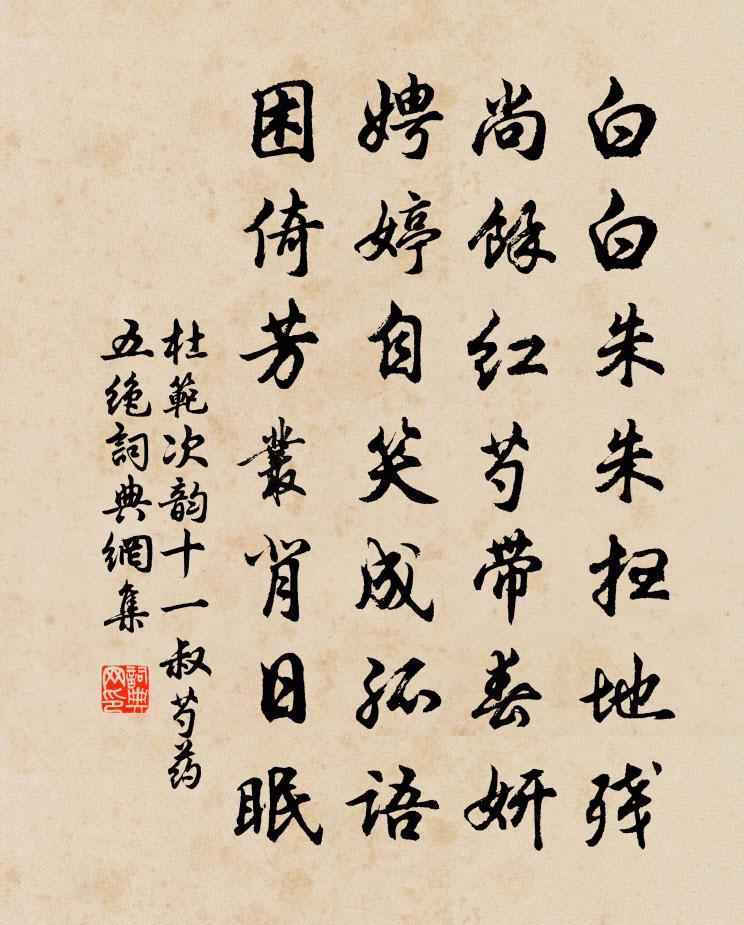 白白朱朱扫地残
尚馀红芍带春妍
娉婷自笑成孤语
困倚芳叢背日眠
杜範次韵十一叔芍药
五绝詞典網集
詞典网印